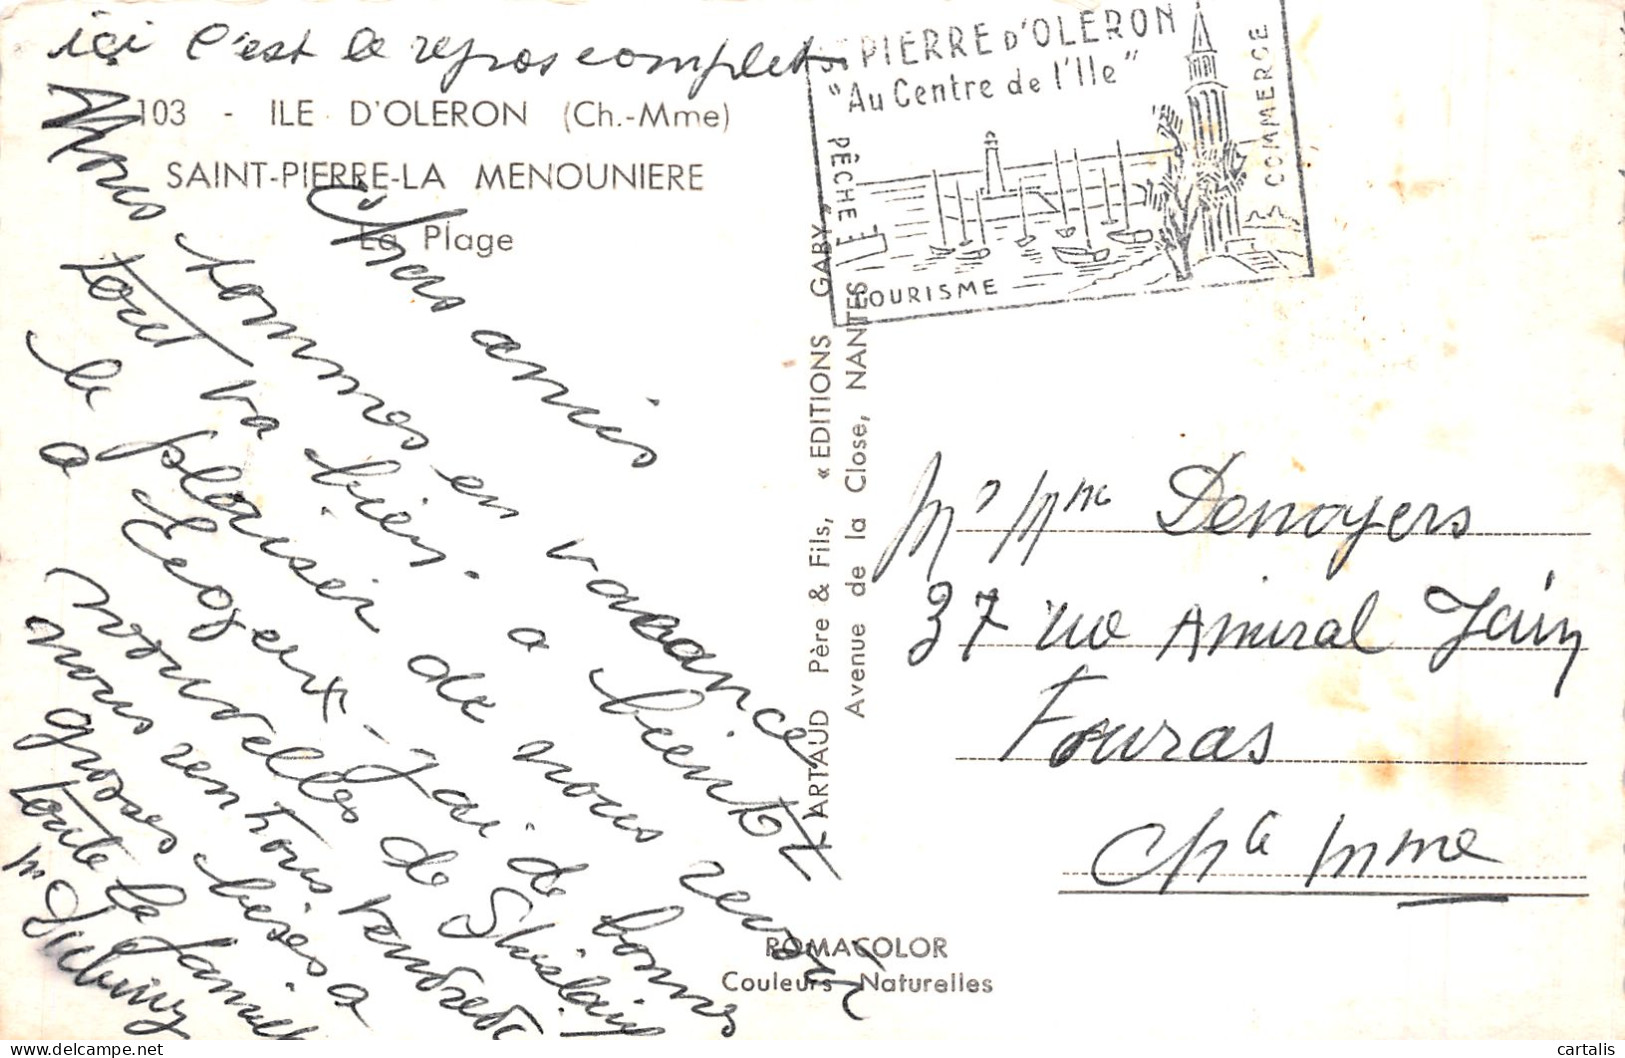 içi c'est le repos complet
103 - ILE D'OLERON (Ch.-Mme)
SAINT-PIERRE-LA MENOUNIERE
La Plage
Chers amis
Nous sommes en vacances
tout va bien. a bientot
le plaisir de nous revoir
a Jai de bonnes
nouvelles de
nous rentrons vendredi
grosses bises a
toute la famille
PIERRE D'OLERON
"Au Centre de l'Ile"
PÊCHE
TOURISME
COMMERCE
ARTAUD Père & Fils, « EDITIONS GABY »
Avenue de la Close, NANTES
Mr Mme Denoyers
37 rue Amiral Jain
Fouras
Chte Mme
ROMACOLOR
Couleurs Naturelles
cartalis